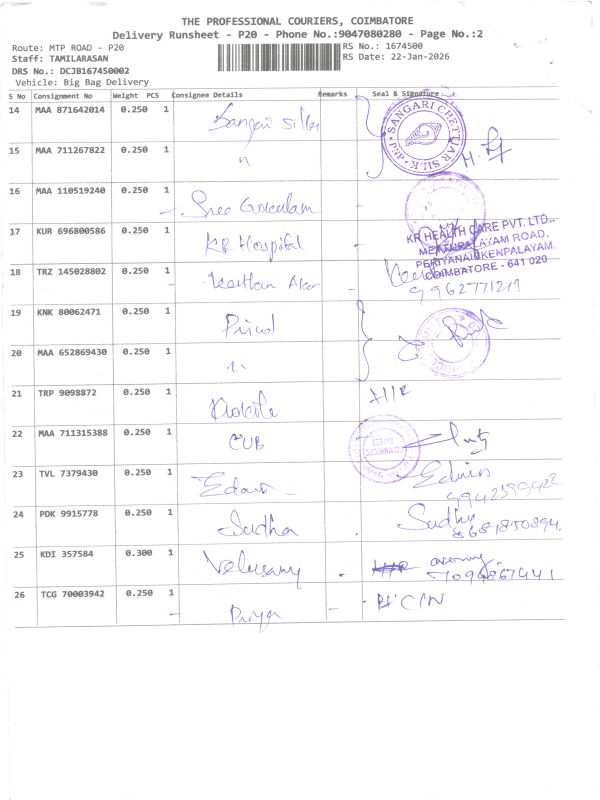 THE PROFESSIONAL COURIERS, COIMBATORE
Delivery Runsheet - P20 - Phone No.:9047080280 - Page No.:2
Route: MTP ROAD - P20
RS No.: 1674500
Staff: TAMILARASAN
RS Date: 22-Jan-2026
DRS No.: DCJB167450002
Vehicle: Big Bag Delivery
S No Consignment No Weight PCS Consignee Details Remarks Seal & Signature
14 MAA 871642014 0.250 1 Sangari Silks
SANGARI CHETTIAR SILK
15 MAA 711267822 0.250 1 "
16 MAA 110519240 0.250 1 Sree Gokulam
17 KUR 696800586 0.250 1 KR Hospital
KR HEALTH CARE PVT. LTD.,
METTUPALAYAM ROAD,
PERIYANAICKENPALAYAM,
COIMBATORE - 641 020
18 TRZ 145028802 0.250 1
9962771217
19 KNK 80062471 0.250 1
20 MAA 652869430 0.250 1 "
21 TRP 9098872 0.250 1 Kokila
22 MAA 711315388 0.250 1 CUB
23 TVL 7379430 0.250 1 Edwin - Edwin
24 PDK 9915778 0.250 1 Sudha Sudha
8681850894
25 KDI 357584 0.300 1 Velusamy
26 TCG 70003942 0.250 1 Priya